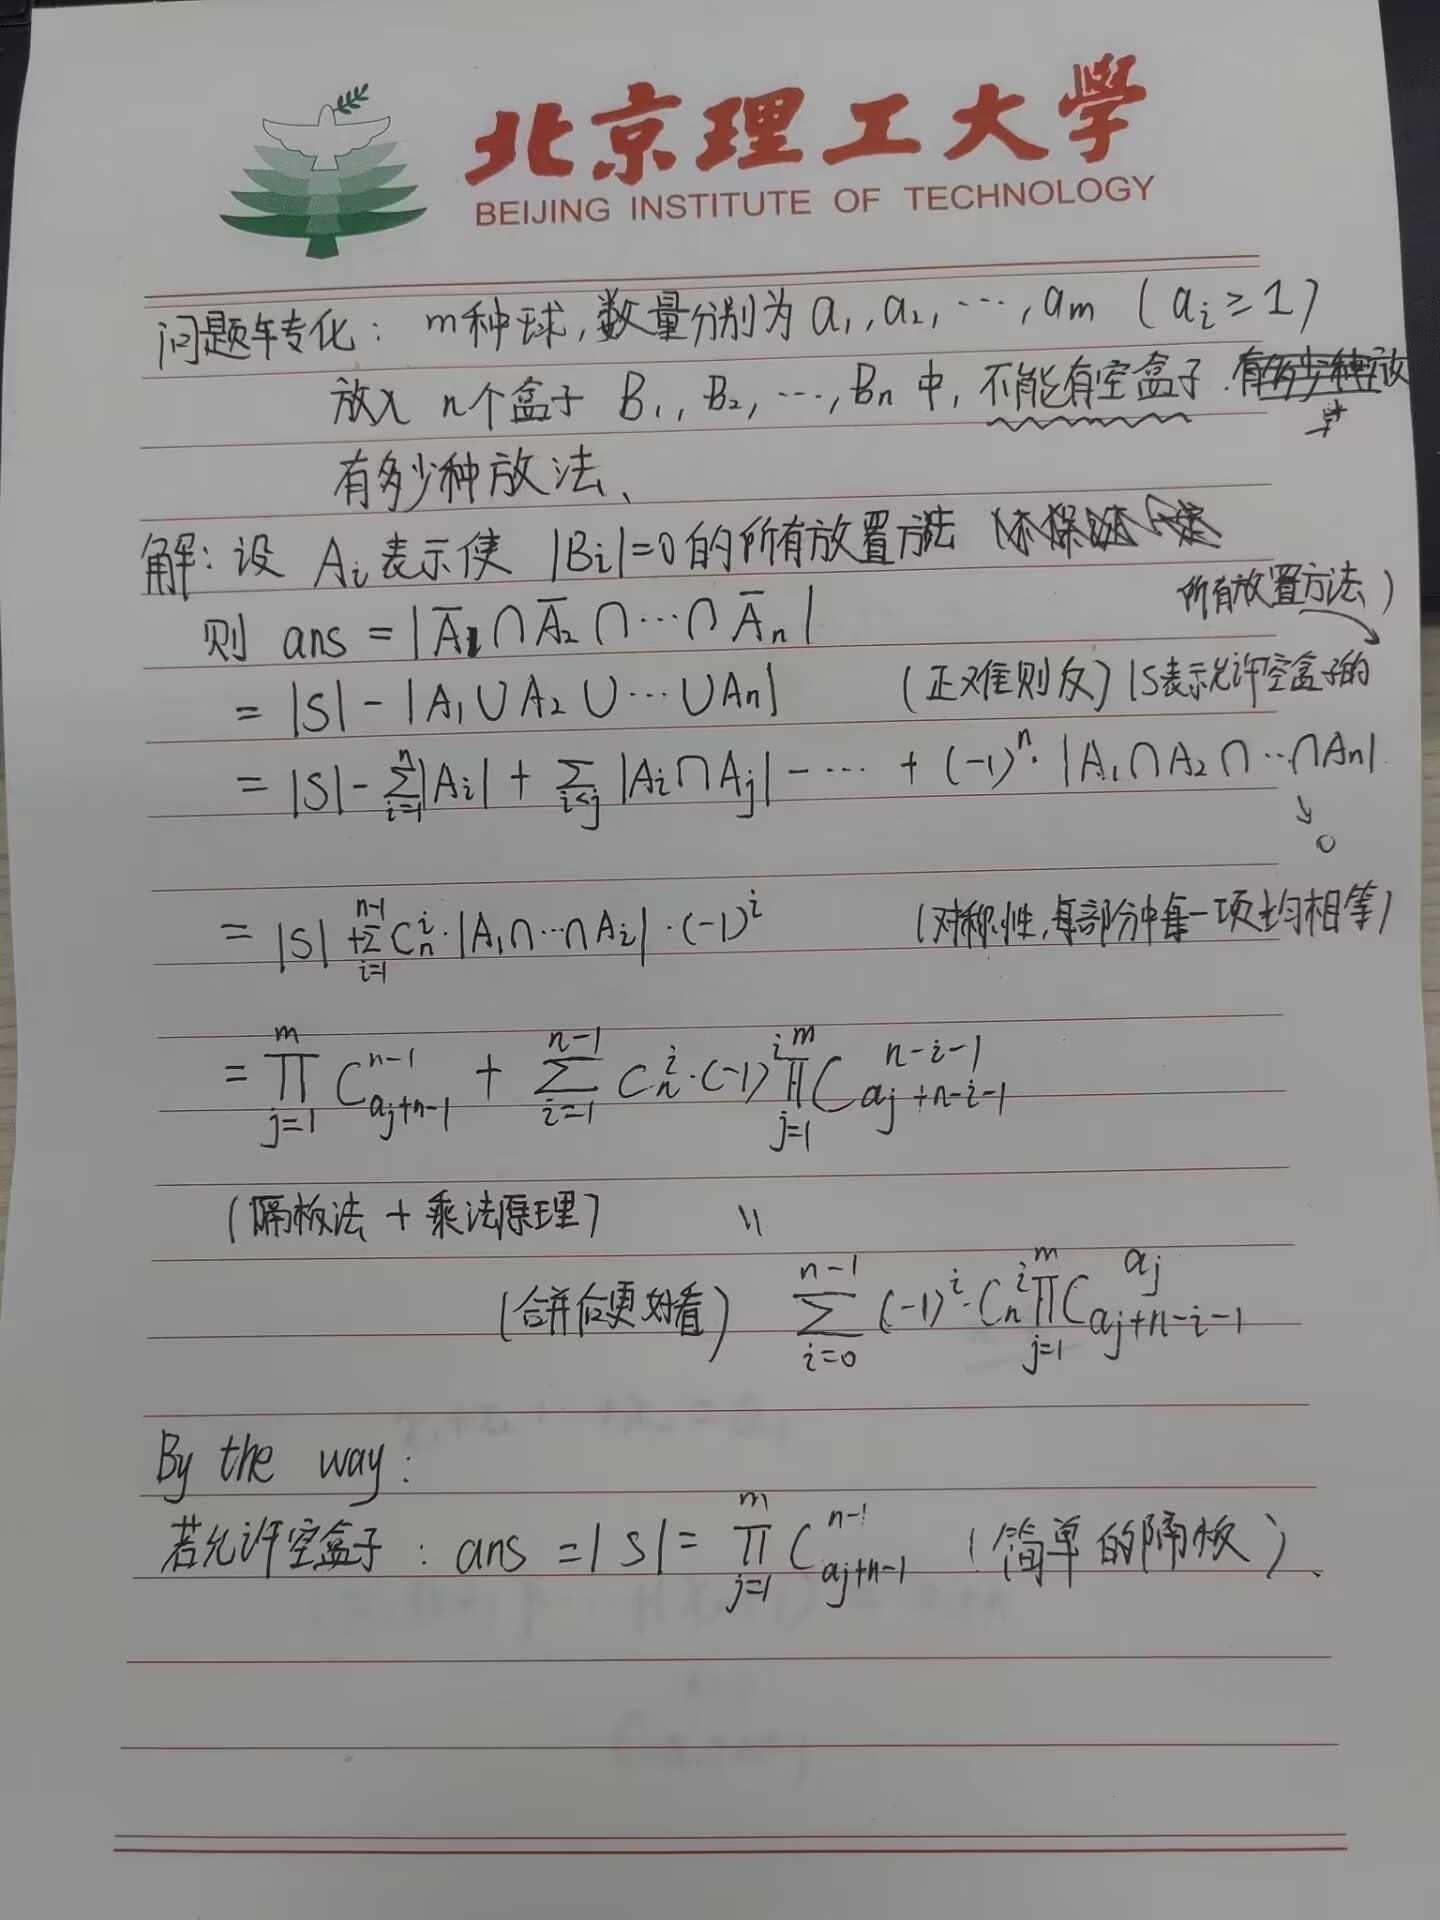 北京理工大学
BEIJING INSTITUTE OF TECHNOLOGY
问题转化: m种球,数量分别为 a₁, a₂, ⋯, aₘ (aᵢ≥1)
放入 n个盒子 B₁, B₂, ⋯, Bₙ 中, 不能有空盒子.
有多少种放法、
解: 设 Aᵢ表示使 |Bᵢ|=0的所有放置方法
则 ans = |A̅₁∩A̅₂∩⋯∩A̅ₙ|
所有放置方法)
= |S| - |A₁∪A₂∪⋯∪Aₙ| (正难则反) (S表示允许空盒子的
= |S| - ∑_{i=1}^{n}|Aᵢ| + ∑_{i<j}|Aᵢ∩Aⱼ| - ⋯ + (-1)ⁿ·|A₁∩A₂∩⋯∩Aₙ|.
↘ 0
= |S| + ∑_{i=1}^{n-1} C_n^i·|A₁∩⋯∩Aᵢ|·(-1)^i (对称性,每部分中每一项均相等)
= ∏_{j=1}^{m} C_{aj+n-1}^{n-1} + ∑_{i=1}^{n-1} C_n^i·(-1)^i ∏_{j=1}^{m} C_{aj+n-i-1}^{n-i-1}
(隔板法 + 乘法原理) \\
(合并后更好看) ∑_{i=0}^{n-1} (-1)^i·C_n^i ∏_{j=1}^{m} C_{aj+n-i-1}^{aj}
By the way:
若允许空盒子: ans = |S| = ∏_{j=1}^{m} C_{aj+n-1}^{n-1} (简单的隔板)、